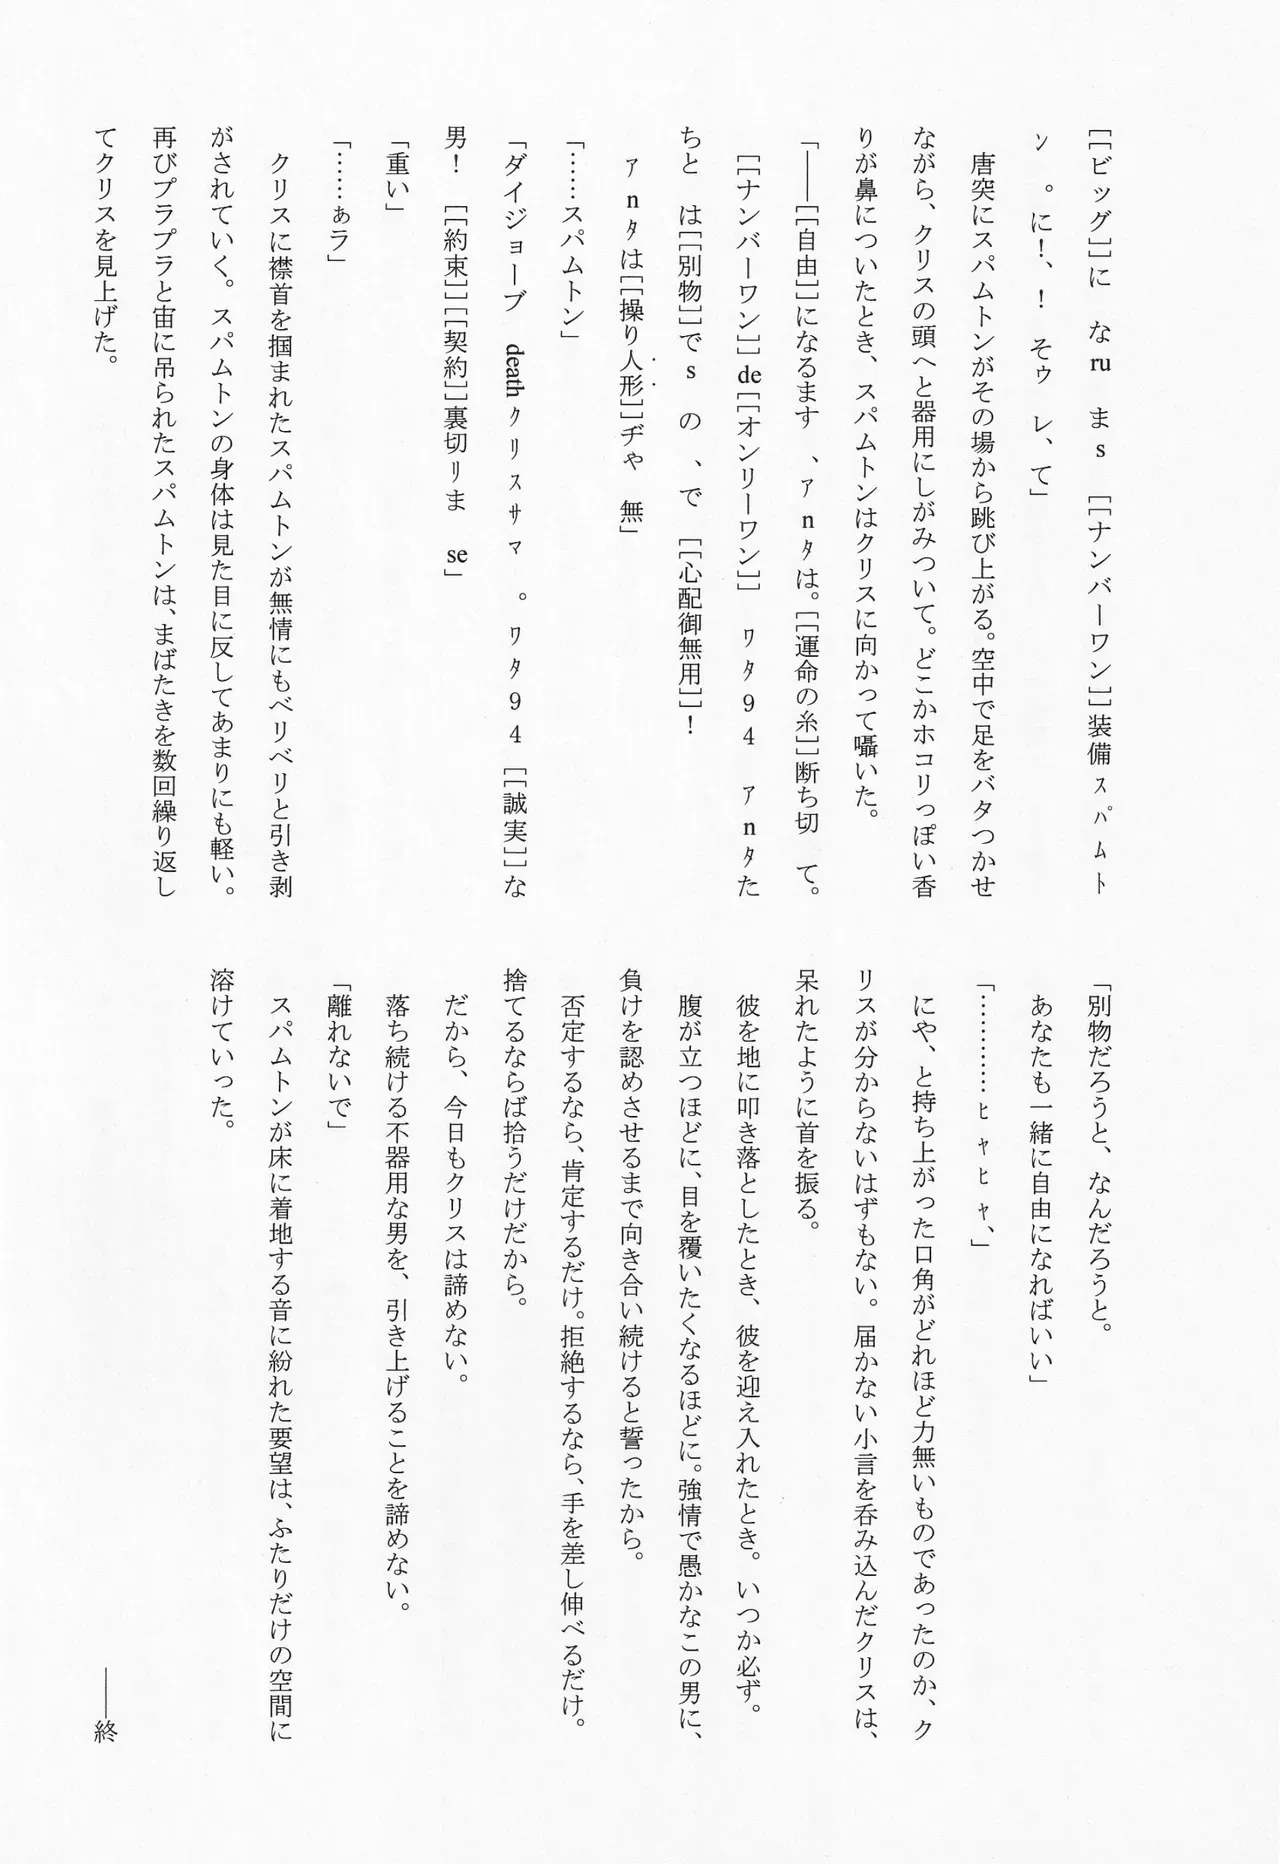 [[ビッグ]]に　なru　まs　[[ナンバーワン]]装備ｽﾊﾟﾑﾄ
ﾝ　。に!、!　そゥ　レ、て」
　唐突にスパムトンがその場から跳び上がる。空中で足をバタつかせ
ながら、クリスの頭へと器用にしがみついて。どこかホコリっぽい香
りが鼻についたとき、スパムトンはクリスに向かって囁いた。
「――[[自由]]になるます　、ｱnﾀは。[[運命の糸]]断ち切　て。
　[[ナンバーワン]]de[[オンリーワン]]　ﾜﾀ94　ｱnﾀた
ちと　は[[別物]]でs　の、で　[[心配御無用]]!
　ｱnﾀは[[操り人形]]ヂゃ　無」
「……スパムトン」
「ダイジョーブ　deathｸﾘｽｻﾏ　。ﾜﾀ94　[[誠実]]な
男!　[[約束]][[契約]]裏切ﾘま　se」
「重い」
「……ぁラ」
　クリスに襟首を掴まれたスパムトンが無情にもベリベリと引き剥
がされていく。スパムトンの身体は見た目に反してあまりにも軽い。
再びプラプラと宙に吊られたスパムトンは、まばたきを数回繰り返し
てクリスを見上げた。
「別物だろうと、なんだろうと。
　あなたも一緒に自由になればいい」
「…………ﾋｬﾋｬ、」
　にや、と持ち上がった口角がどれほど力無いものであったのか、ク
リスが分からないはずもない。届かない小言を呑み込んだクリスは、
呆れたように首を振る。
　彼を地に叩き落としたとき、彼を迎え入れたとき。いつか必ず。
　腹が立つほどに、目を覆いたくなるほどに。強情で愚かなこの男に、
負けを認めさせるまで向き合い続けると誓ったから。
　否定するなら、肯定するだけ。拒絶するなら、手を差し伸べるだけ。
捨てるならば拾うだけだから。
　だから、今日もクリスは諦めない。
　落ち続ける不器用な男を、引き上げることを諦めない。
「離れないで」
　スパムトンが床に着地する音に紛れた要望は、ふたりだけの空間に
溶けていった。
――終